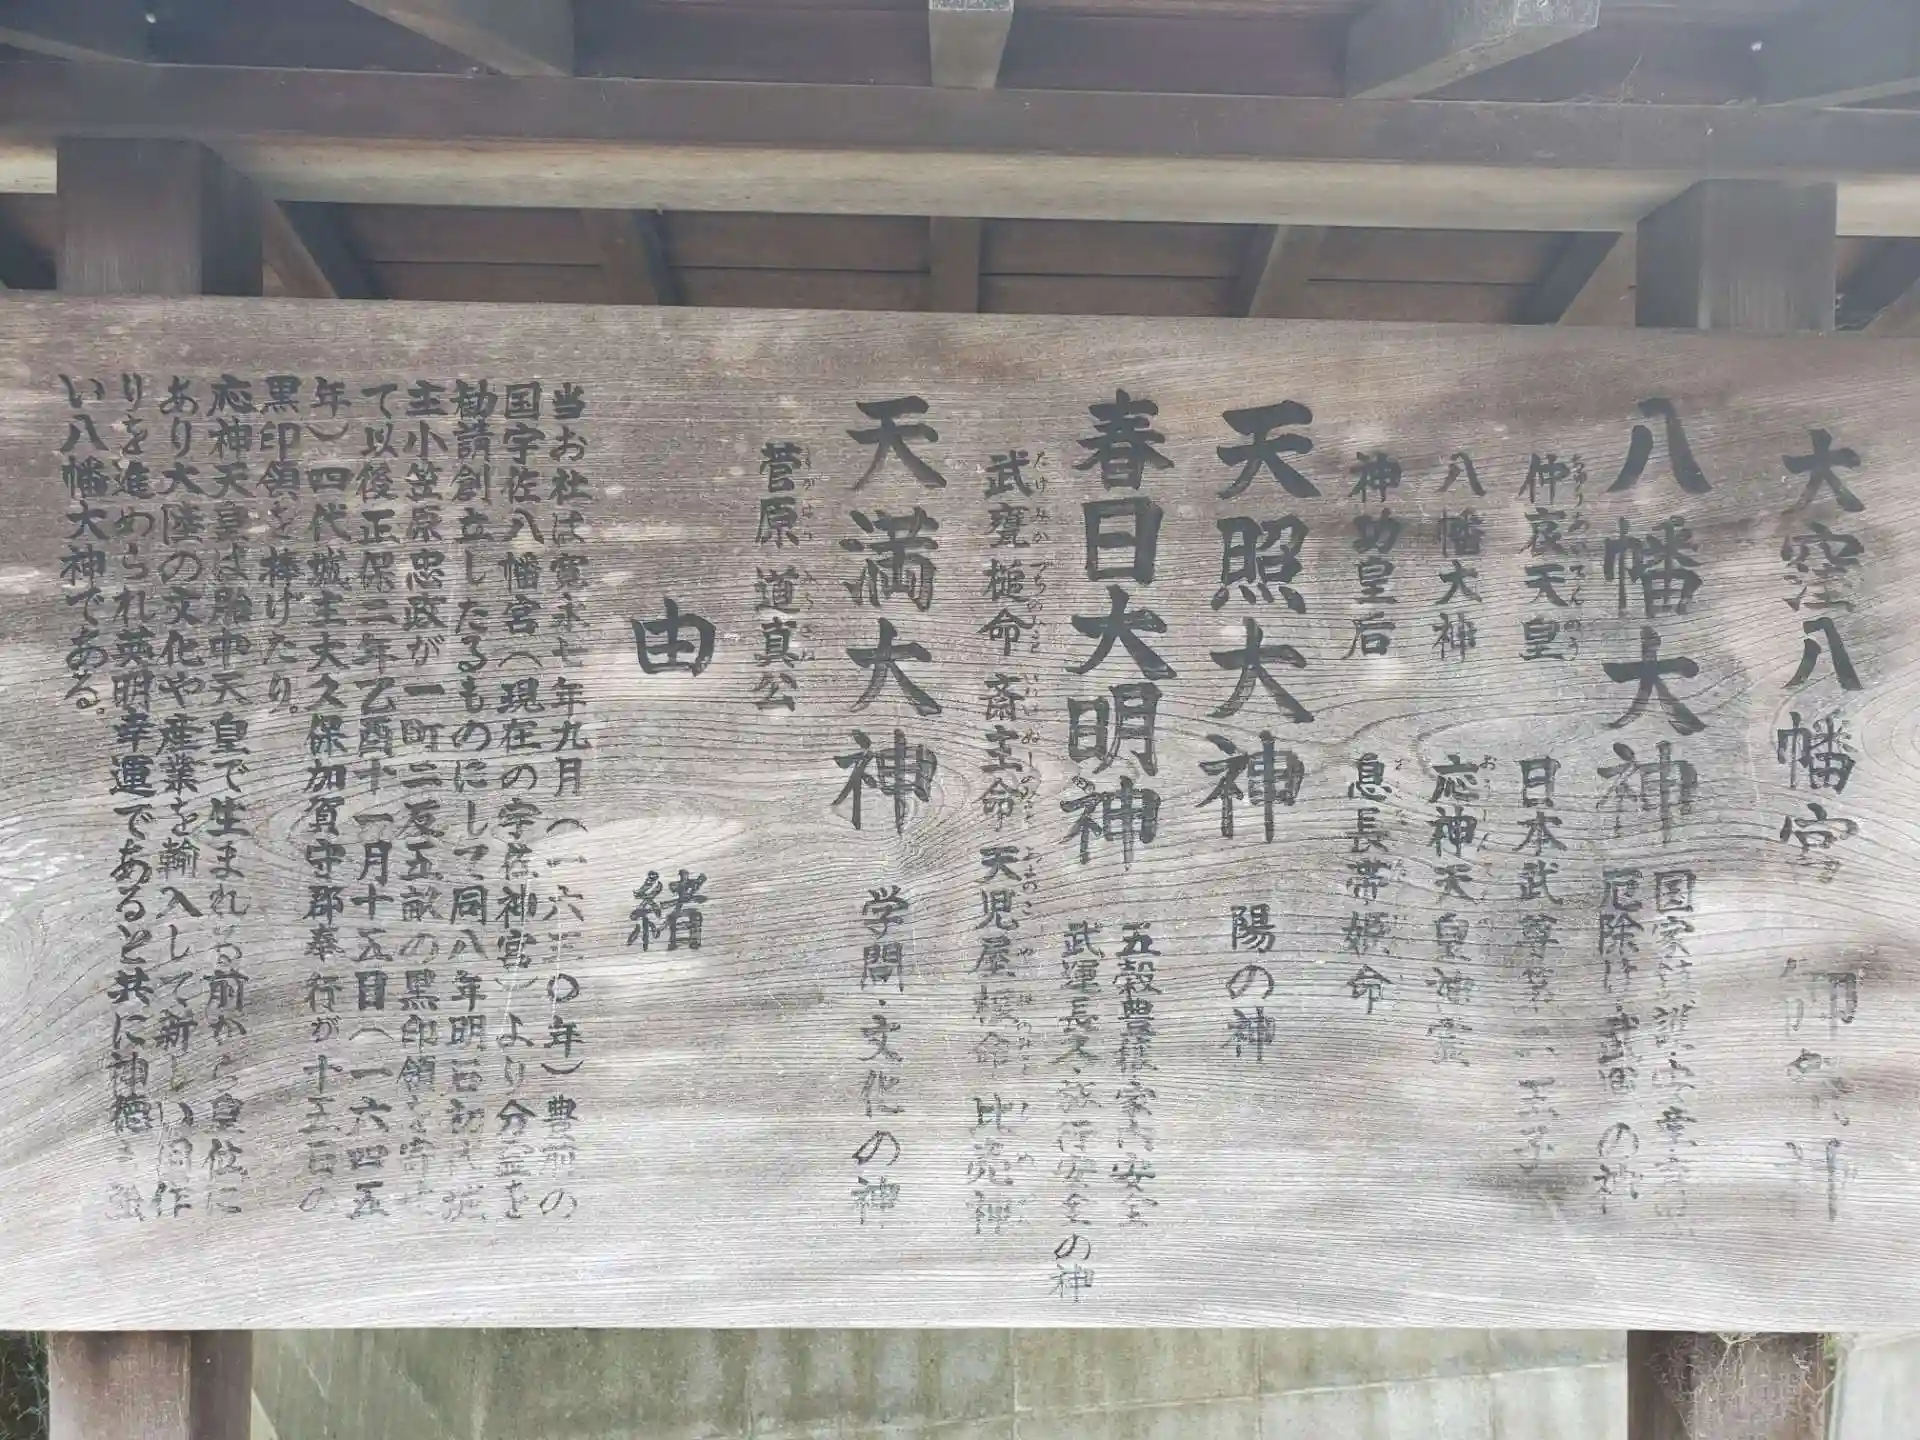 大窪八幡宮 御祭神
八幡大神
国家
厄除け・武運の神
仲哀天皇 日本武尊第二王子
八幡大神 応神天皇神霊
神功皇后 息長帯姫命
天照大神 陽の神
春日大明神
五穀豊穣家内安全
武運長久・旅行安全の神
武甕槌命 斎主命 天児屋根命 比売神
天満大神 学問・文化の神
菅原道真公
由緒
当お社は寛永七年九月(一六三〇年)豊前の
国宇佐八幡宮(現在の宇佐神宮)より分霊を
勧請創立したるものにして同八年明石初代城
主小笠原忠政が一町二反五畝の黒印領を寄せ
て以後正保二年乙酉十一月十五日(一六四五
年)四代城主大久保加賀守郡奉行が十五石の
黒印領を棒げたり。
応神天皇は胎中天皇で生まれる前から皇位に
あり大陸の文化や産業を輸入して新しい国作
りを進められ英明幸運であると共に神徳も強
い八幡大神である。